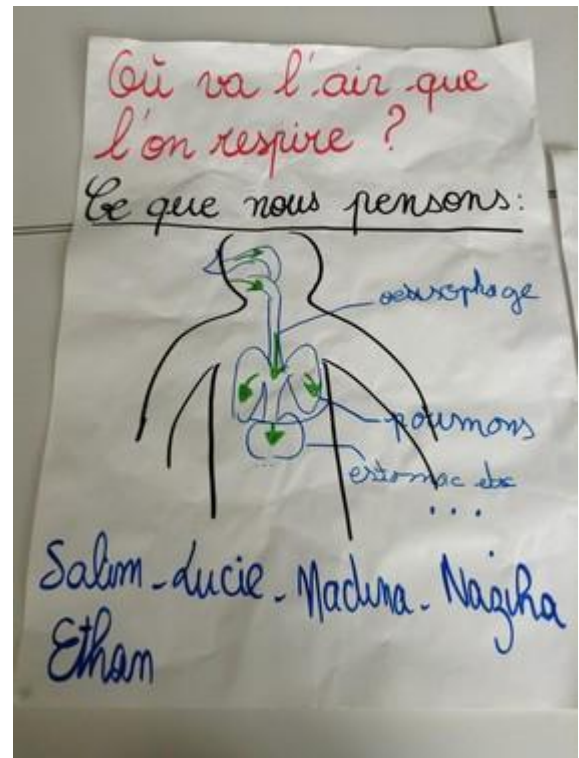 Où va l'air que
l'on respire ?
Ce que nous pensons:
oesusophage
poumons
estomac etc
...
Salim - Lucie - Madina - Naziha
Ethan